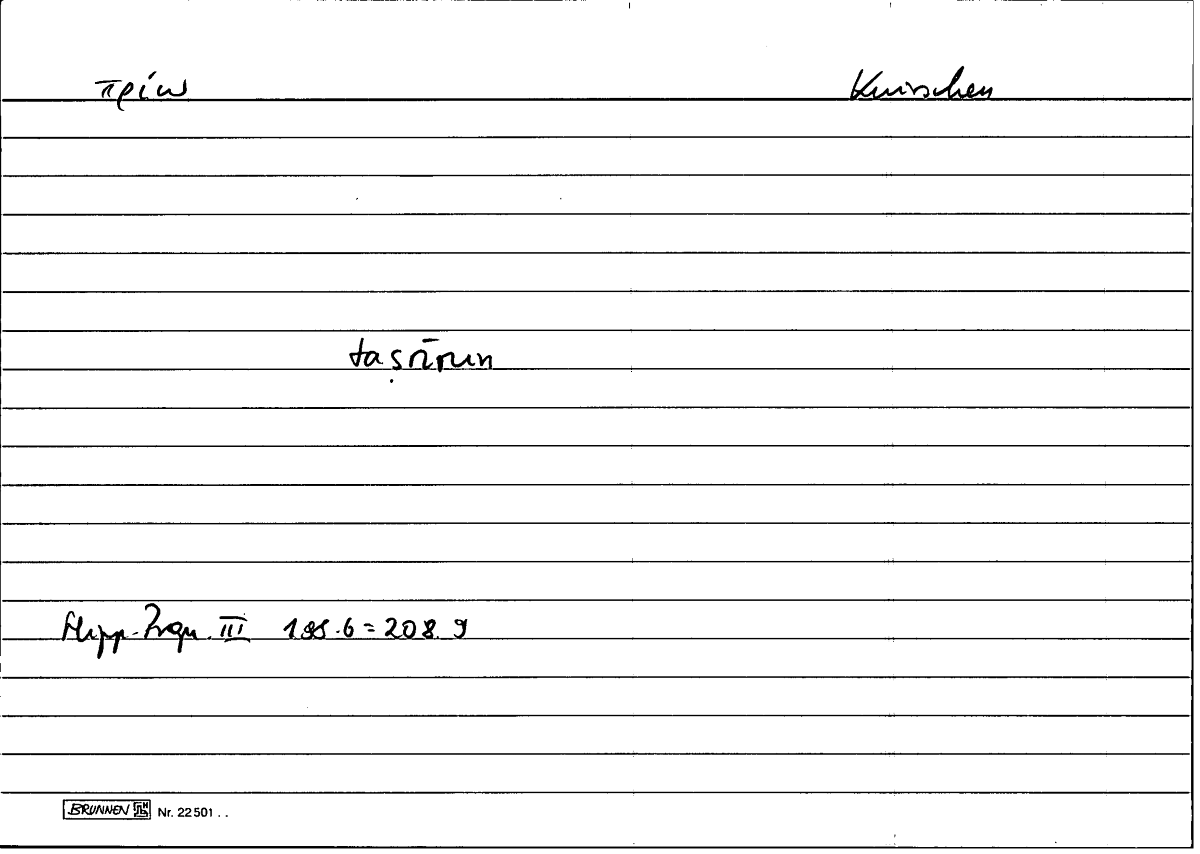 πρίω Knirschen
taṣrīrun
Hipp. Progn. III 198.6 = 208.9
BRUNNEN Nr. 22501 . .